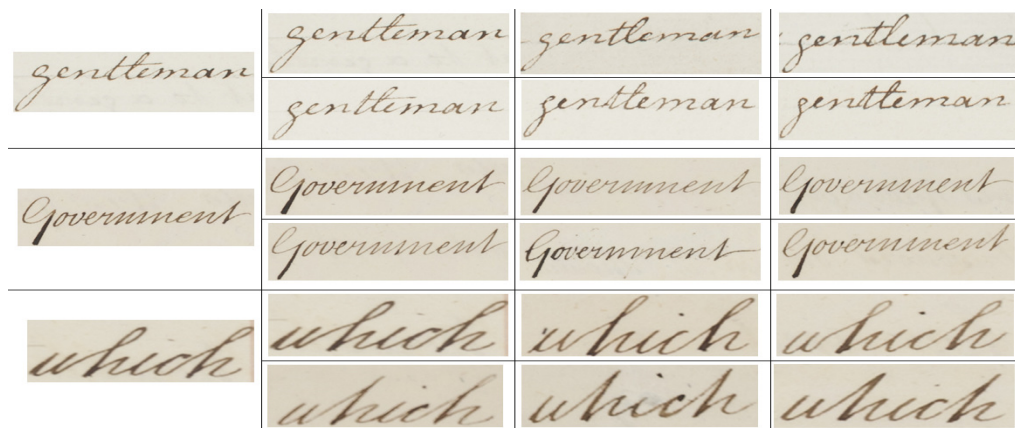 gentleman
gentleman gentleman gentleman
gentleman gentleman gentleman
Government
Government Government Government
Government Government Government
which
which which which
which which which